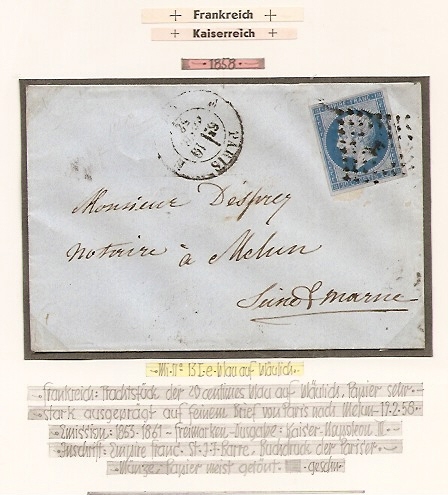 Frankreich
Kaiserreich
1858
PARIS
Monsieur Desprez
notaire à Melun
Seine & marne
Mi-Nº 13 I-e-blau auf bläulich.
Frankreich: Prachtstück der 20 centimes blau auf bläulich. Papier sehr
stark ausgeprägt auf feinem Brief von Paris nach Melun - 19-2-58 -
Emission: 1853-1861 - Freimarken-Ausgabe: Kaiser Napoleon III
Inschrift: Empire Franc. St: J-J-Barre. Buchdruck der Pariser
Münze. Papier meist getönt. geschn.